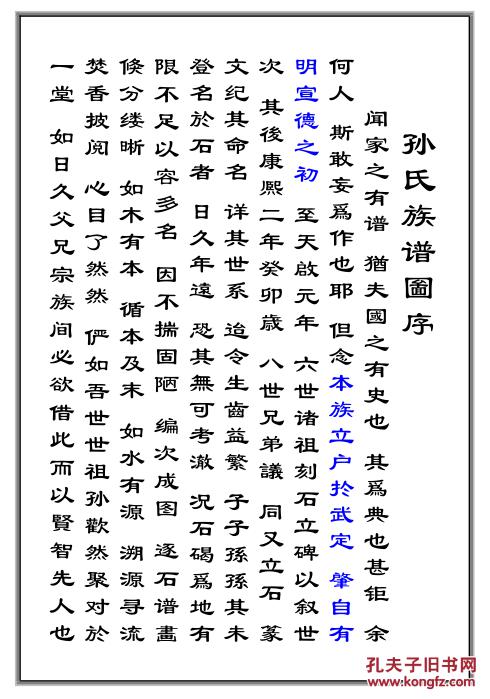 孙氏族谱圖序
闻家之有谱 猶夫國之有史也 其爲典也甚钜 余
何人 斯敢妄爲作也耶 但念本族立户於武定 肇自有
明宣德之初 至天啟元年 六世诸祖刻石立碑以叙世
次 其後康熙二年癸卯歲 八世兄弟議 同又立石 篆
文纪其命名 详其世系 迨令生齒益繁 子子孫孫其未
登名於石者 日久年遠 恐其無可考澈 况石碣爲地有
限不足以容多名 因不揣固陋 编次成图 逐石谱畫
候分缕晰 如木有本 循本及末 如水有源 溯源寻流
焚香披阅 心目了然然 俨如吾世世祖孙歡然聚对於
一堂 如日久父兄宗族间必欲借此而以賢智先人也
孔夫子旧书网
www.kongfz.com